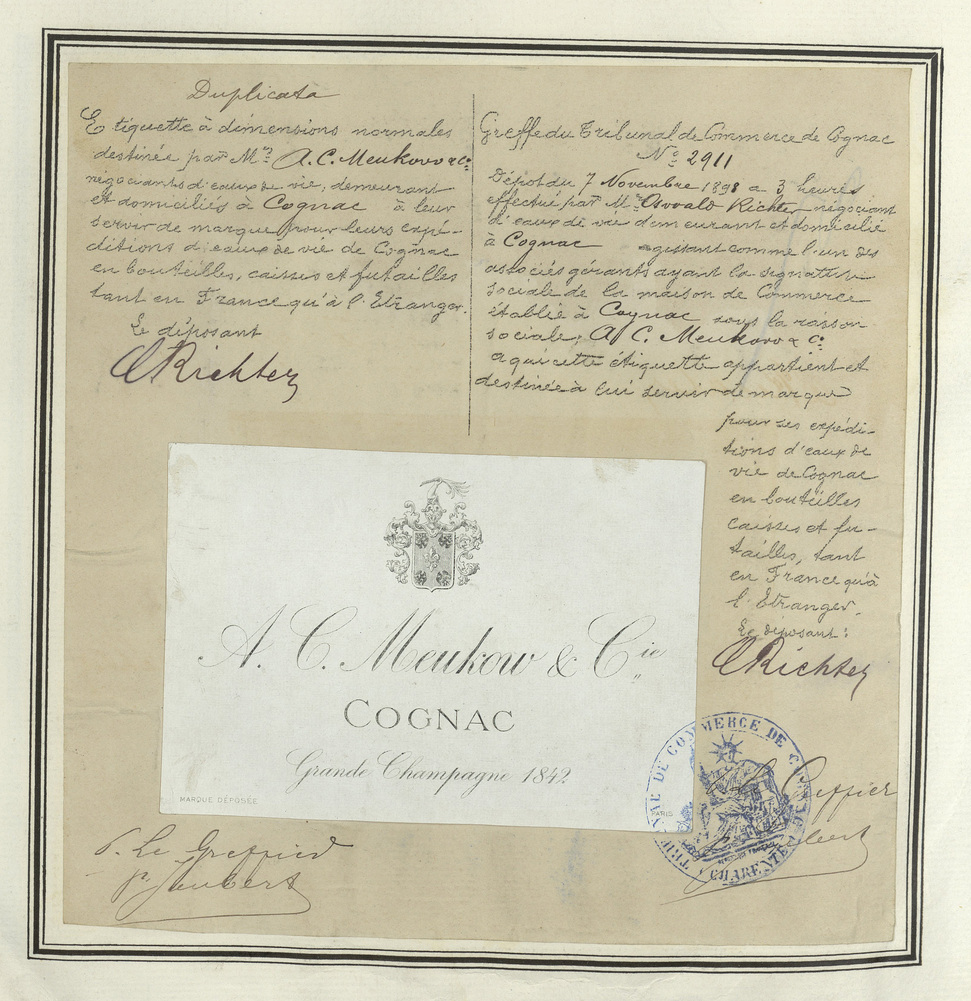 Duplicata
Etiquette à dimensions normales
destinée par Mrs A. C. Meukow & Co
négociants d'eaux de vie, demeurant
et domiciliés à Cognac à leur
servir de marque pour leurs expé-
ditions d'eaux de vie de Cognac
en bouteilles, caisses et futailles
tant en France qu'à l'Etranger.
Le déposant
ORichter
Greffe du Tribunal de Commerce de Cognac
No 2911
Dépôt du 7 Novembre 1898 a 3 heures
effectué par Mr Oswald Richter négociant
d'eaux de vie demeurant et domicilié
à Cognac agissant comme l'un des
associés gérants ayant la signature
sociale de la maison de Commerce
établie à Cognac sous la raison
sociale, A. C. Meukow & Co
a qui cette étiquette appartient et
destinée à lui servir de marque
pour ses expédi-
tions d'eaux de
vie de Cognac
en bouteilles
caisses et fu-
tailles, tant
en France qu'à
l'Etranger.
Le déposant:
ORichter
A. C. Meukow & Cie
COGNAC
Grande Champagne 1842
MARQUE DÉPOSÉE
PARIS
TRIBUNAL DE COMMERCE DE COGNAC
CHARENTE
Le Greffier
Joubert
Greffier